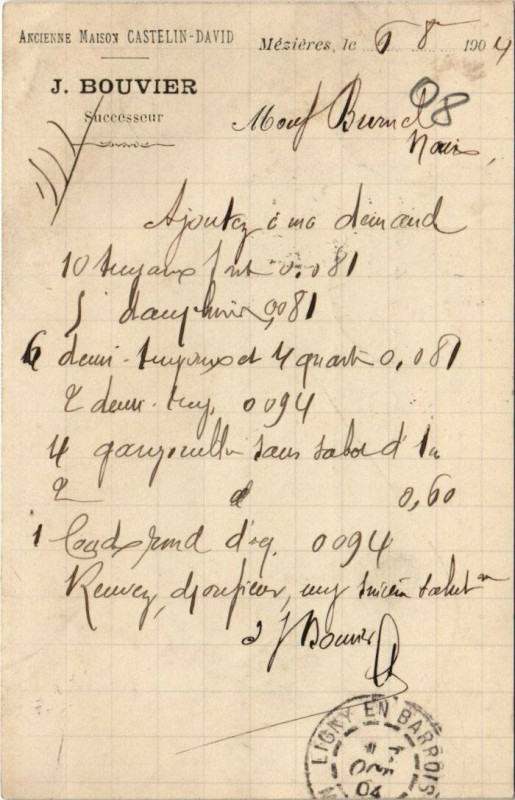 ANCIENNE MAISON CASTELIN-DAVID
Mézières, le 8 1904
J. BOUVIER
Successeur
98
Ajoutez à ma demande
10 tuyaux fonte 0.081
5 dauphins 0,081
6 demi-tuyaux et 4 quarts 0,081
2 demi-tuy. 0094
4 gargouilles sans sabot d'1m
2 d 0,60
1 Coude rond d'eq. 0094
Recevez, Monsieur, mes sincères salutons
J Bouvier
LIGNY EN BARROIS
OCT
04